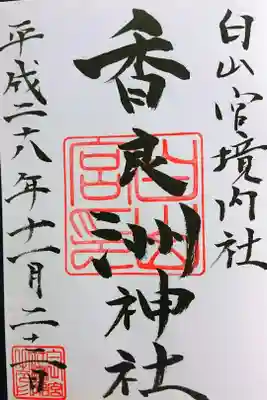 白山宮境内社
香良洲神社
白山
宮印
平成二六年十一月二十二日